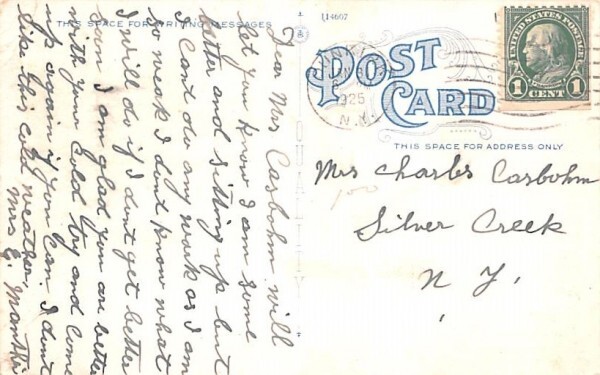 THIS SPACE FOR WRITING MESSAGES
Dear Mrs Carbohm will
let you know I am some
better and sitting up but
I Cant do any work as I am
so weak I dont know what
I will do if I dont get better
soon I am glad you are better
with your Cold try and come
up again if you Can I dont
like this cold weather.
Mrs E. Manthei
114607
POST
CARD
1925
N.Y.
UNITED STATES POSTAGE
1 1
CENT
THIS SPACE FOR ADDRESS ONLY
Mrs Charles Carbohm
100
Silver Creek
N Y.